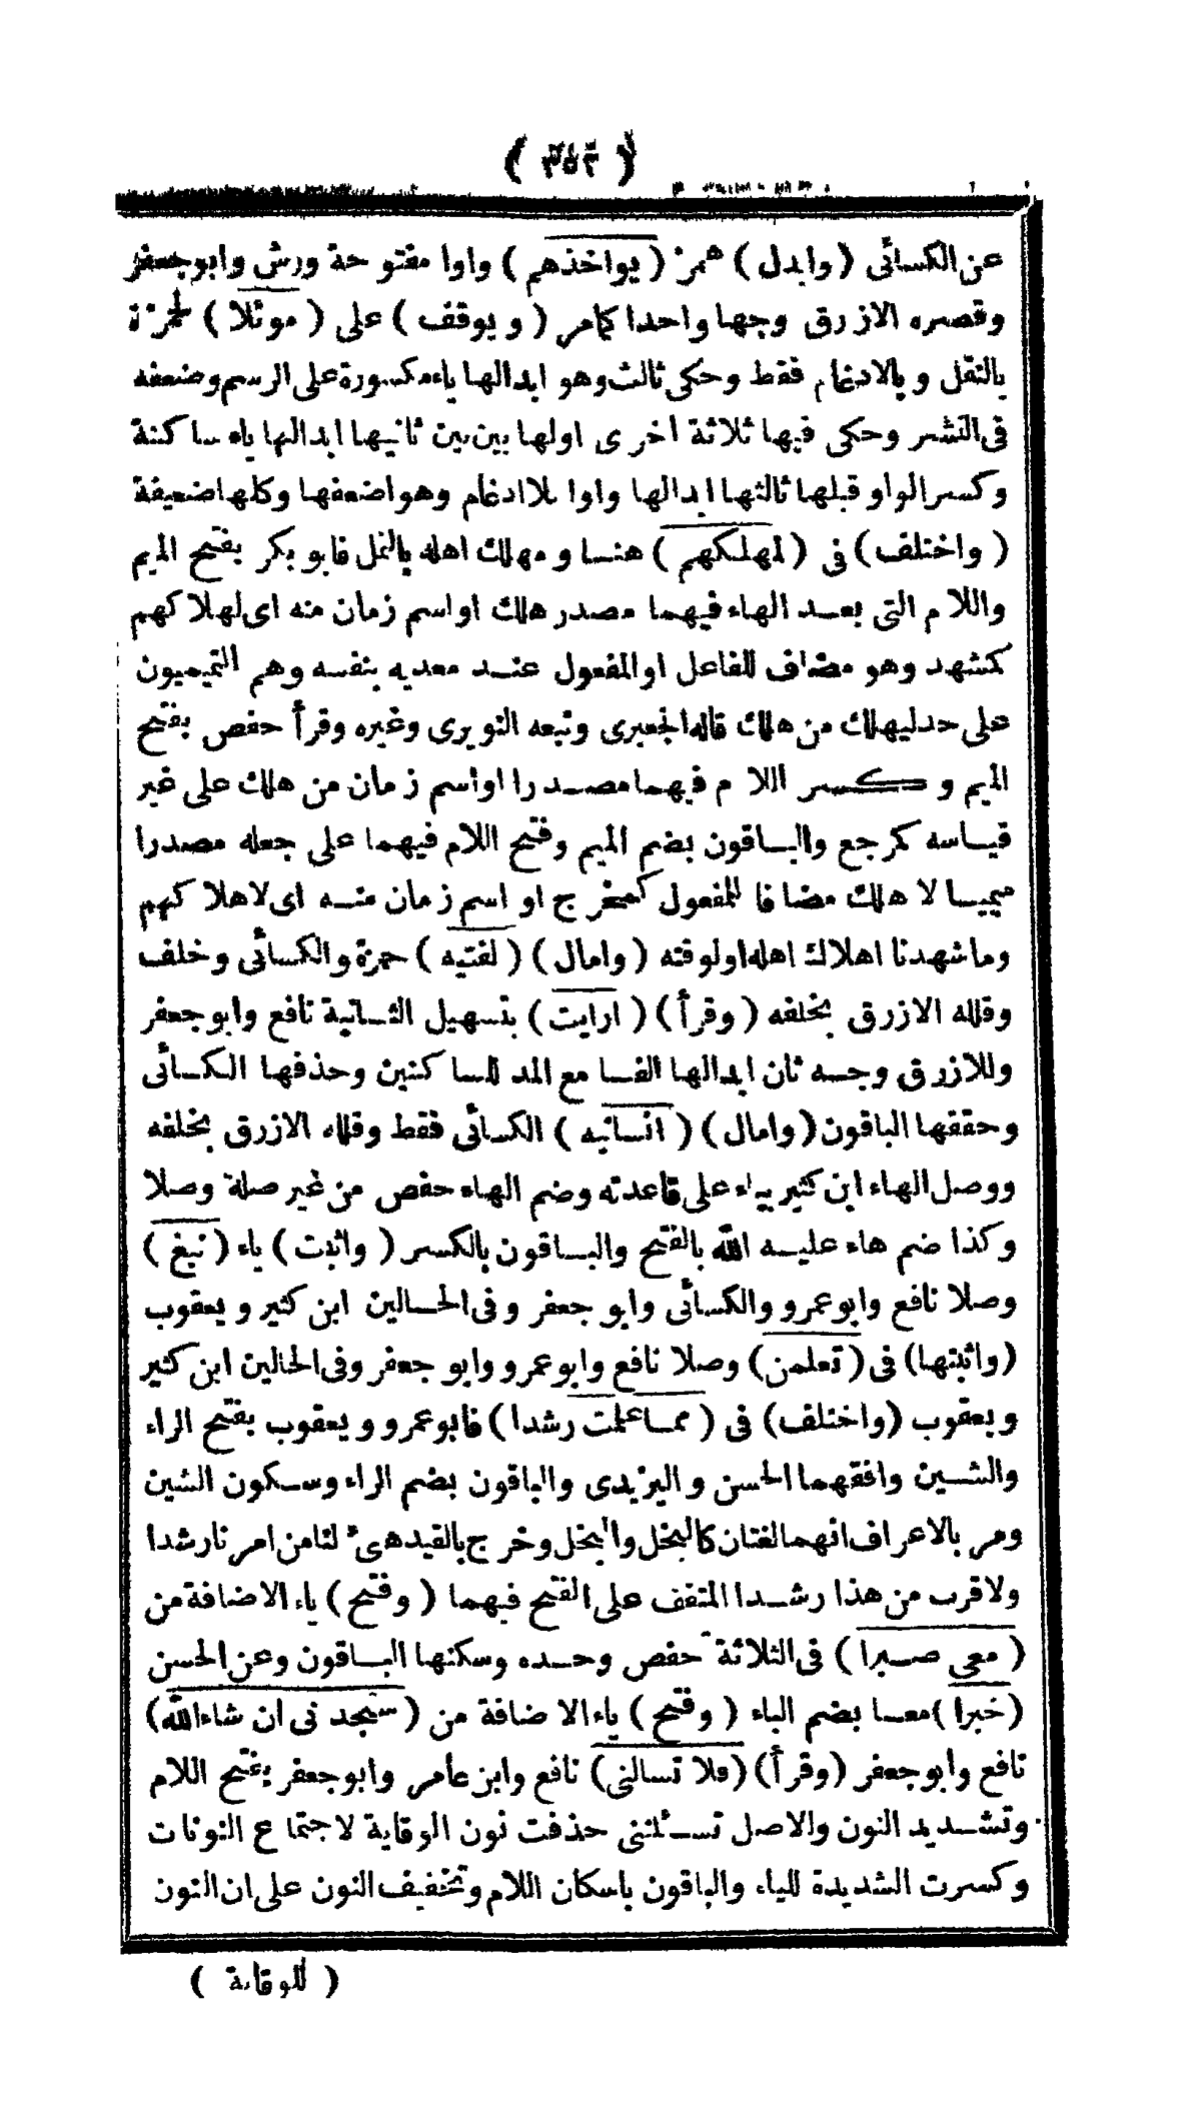 ( ٣٥٢ )
عن الكسائى (وابدل) همز (يواخذهم) واوا مفتوحة ورش وابو جعفر
وقصره الازرق وجها واحدا كمامر (ويوقف) على (موئلا) لحمزة
بالنقل وبالادغام فقط وحكى ثالث وهو ابدالها ياء مكسورة على الرسم وضعفه
فى النشر وحكى فيها ثلاثة اخرى اولها بين بين ثانيها ابدالها ياء ساكنة
وكسر الواو قبلها ثالثها ابدالها واوا بلا ادغام وهو اضعفها وكلها ضعيفة
(واختلف) فى (لمهلكهم) هنا ومهلك اهله بالنمل فابو بكر بفتح الميم
واللام التى بعد الهاء فيهما مصدر هلك او اسم زمان منه اى لهلاكهم
كشهد وهو مضاف للفاعل او المفعول عند معديه بنفسه وهم التميميون
على حد ليهلك من هلك قاله الجعبرى وتبعه النويرى وغيره وقرأ حفص بفتح
الميم وكسر اللام فيهما مصدرا او اسم زمان من هلك على غير
قياسه كمرجع والباقون بضم الميم وفتح اللام فيهما على جعله مصدرا
ميميا لاهلك مضافا للمفعول كمخرج او اسم زمان منه اى لاهلاكهم
وما شهدنا اهلاك اهله او لوقته (وامال) (لفتيه) حمزة والكسائى وخلف
وقلله الازرق بخلفه (وقرأ) (ارايت) بتسهيل الثانية نافع وابو جعفر
وللازرق وجه ثان ابدالها الفا مع المد للساكنين وحذفها الكسائى
وحققها الباقون (وامال) (انسانيه) الكسائى فقط وقلله الازرق بخلفه
ووصل الهاء ابن كثير بياء على قاعدته وضم الهاء حفص من غير صلة وصلا
وكذا ضم هاء عليه الله بالفتح والباقون بالكسر (واثبت) ياء (نبغ)
وصلا نافع وابو عمرو والكسائى وابو جعفر وفى الحالين ابن كثير ويعقوب
(واثبتها) فى (تعلمن) وصلا نافع وابو عمرو وابو جعفر وفى الحالين ابن كثير
ويعقوب (واختلف) فى (مما علمت رشدا) فابو عمرو ويعقوب بفتح الراء
والشين وافقهما الحسن واليزيدى والباقون بضم الراء وسكون الشين
ومر بالاعراف انهما لغتان كالبخل والبخل وخرج بالقيد هىء لنا من امرنا رشدا
ولاقرب من هذا رشدا المتفق على الفتح فيهما (وفتح) ياء الاضافة من
(معى صبرا) فى الثلاثة حفص وحده وسكنها الباقون وعن الحسن
(خبرا) معا بضم الباء (وفتح) ياء الاضافة من (ستجدنى ان شاء الله)
نافع وابو جعفر (وقرأ) (فلا تسالنى) نافع وابن عامر وابو جعفر بفتح اللام
وتشديد النون والاصل تسئلننى حذفت نون الوقاية لاجتماع النونات
وكسرت الشديدة للياء والباقون باسكان اللام وتخفيف النون على ان النون
( للوقاية )